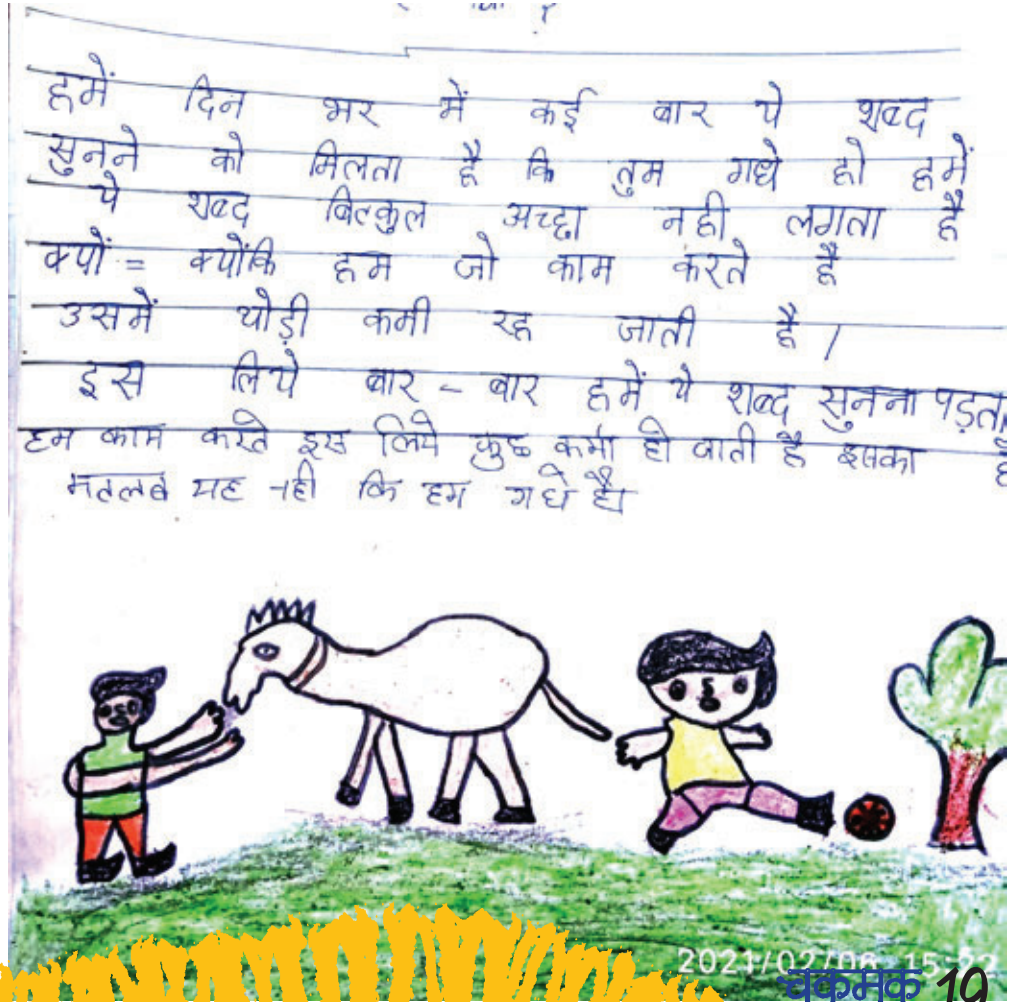 हमें दिन भर में कई बार ये शब्द
सुनने को मिलता है कि तुम गधे हो हमें
ये शब्द बिल्कुल अच्छा नही लगता है
क्यों = क्योंकि हम जो काम करते है
उसमें थोड़ी कमी रह जाती है ।
इस लिये बार - बार हमें ये शब्द सुनना पड़ता है
हम काम करते इस लिये कुछ कमी हो जाती है इसका
मतलब यह नही कि हम गधे है।
2021/02/06 15:22
चकमक 19